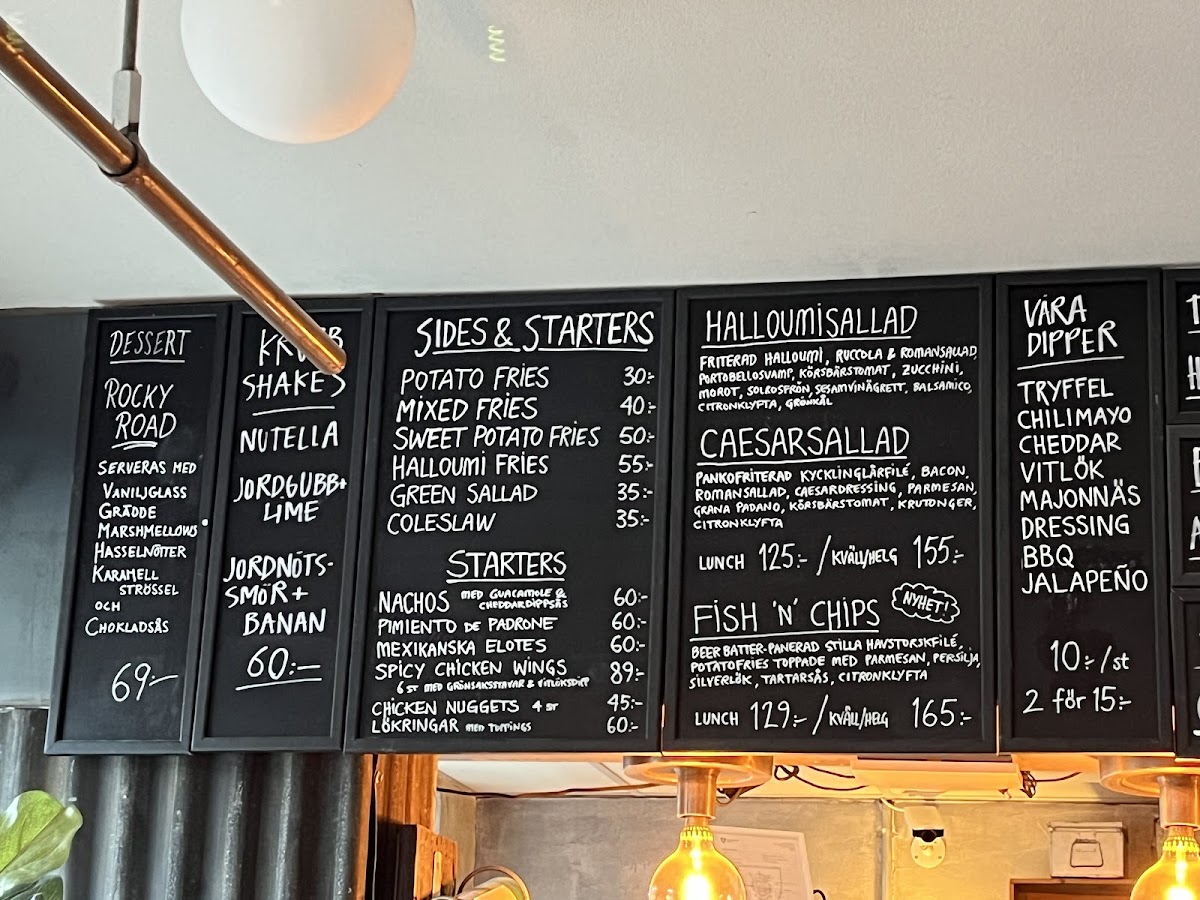 DESSERT
ROCKY
ROAD
SERVERAS MED
VANILJGLASS
GRÄDDE
MARSHMELLOWS
HASSELNÖTTER
KARAMELL
STRÖSSEL
OCH
CHOKLADSÅS
69:-
SHAKES
NUTELLA
JORDGUBB+
LIME
JORDNÖTS-
SMÖR +
BANAN
60:-
SIDES & STARTERS
POTATO FRIES 30:-
MIXED FRIES 40:-
SWEET POTATO FRIES 50:-
HALLOUMI FRIES 55:-
GREEN SALLAD 35:-
COLESLAW 35:-
STARTERS
NACHOS MED GUACAMOLE & CHEDDARDIPPSÅS 60:-
PIMIENTO DE PADRONE 60:-
MEXIKANSKA ELOTES 60:-
SPICY CHICKEN WINGS 89:-
6 ST MED GRÖNSAKSSTAVAR & VITLÖKSDIPP
CHICKEN NUGGETS 4 ST 45:-
LÖKRINGAR MED TOPPINGS 60:-
HALLOUMISALLAD
FRITERAD HALLOUMI, RUCCOLA & ROMANSALLAD,
PORTOBELLOSVAMP, KÖRSBÄRSTOMAT, ZUCCHINI,
MOROT, SOLROSFRÖN, SESAMVINÄGRETT, BALSAMICO,
CITRONKLYFTA, GRÖNKÅL
CAESARSALLAD
PANKOFRITERAD KYCKLINGLÅRFILÉ, BACON,
ROMANSALLAD, CAESARDRESSING, PARMESAN,
GRANA PADANO, KÖRSBÄRSTOMAT, KRUTONGER,
CITRONKLYFTA
LUNCH 125:- / KVÄLL/HELG 155:-
FISH 'N' CHIPS NYHET!
BEER BATTER-PANERAD STILLA HAVSTORSKFILÉ,
POTATOFRIES TOPPADE MED PARMESAN, PERSILJA,
SILVERLÖK, TARTARSÅS, CITRONKLYFTA
LUNCH 129:- / KVÄLL/HELG 165:-
VÅRA
DIPPER
TRYFFEL
CHILIMAYO
CHEDDAR
VITLÖK
MAJONNÄS
DRESSING
BBQ
JALAPEÑO
10:-/st
2 för 15:-